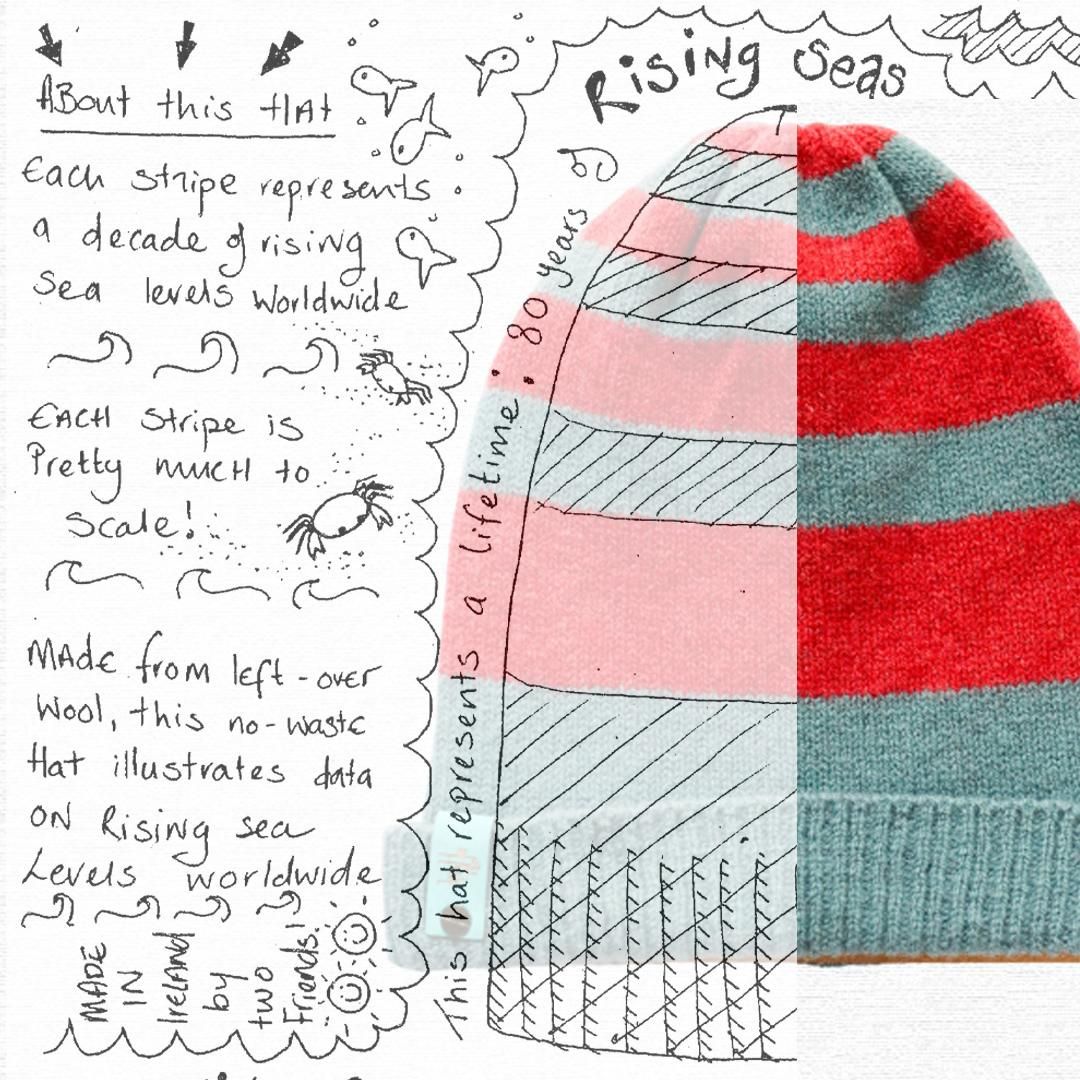 Rising Seas
About this Hat
Each stripe represents
a decade of rising
Sea levels worldwide
EACH Stripe is
Pretty much to
Scale!
Made from left-over
Wool, this no-waste
Hat illustrates data
ON Rising sea
Levels worldwide
MADE
IN
IreLAND
by
two
Friends!
This hat represents a lifetime: 80 years